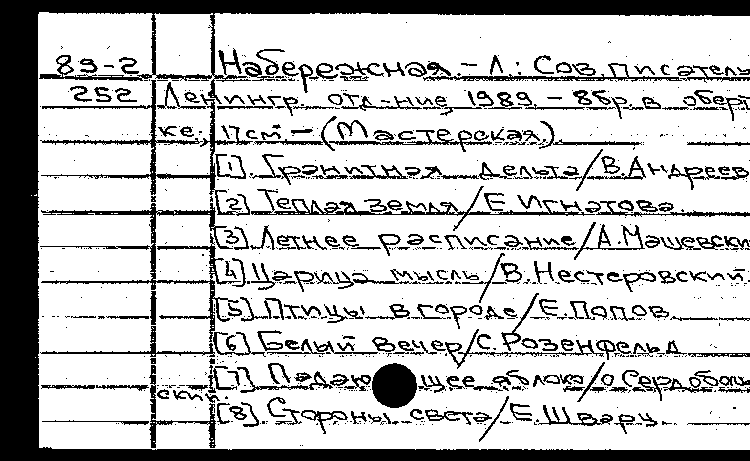 89-2 Набережная. – Л.: Сов. писатель
252 Ленингр. отд-ние, 1989. – 8бр. в оберт
ке; 17см. – (Мастерская).
[1]. Гранитная дельта/В.Андреев
[2]. Теплая земля/Е.Игнатова.
[3]. Летнее расписание/А.Машевски
[4]. Царица мысль/В.Нестеровский.
[5]. Птицы в городе/Е.Попов.
[6]. Белый вечер/С.Розенфельд
[7]. Падающее яблоко/О.Сердоболь
ский.
[8]. Стороны света/Е.Шварц.